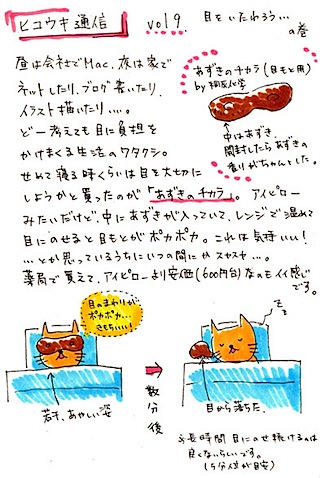 ヒコウキ通信 vol 9. 目をいたわろう…の巻
昼は会社でMac、夜は家で
ネットしたり、ブログ書いたり、
イラスト描いたり….
どー考えても目に負担を
かけまくる生活のワタクシ。
せめて寝る時くらいは目を大切に
しようかと買ったのが「あずきのチカラ」。アイピロー
みたいだけど、中にあずきが入っていて、レンジで温めて
目にのせると目もとがポカポカ。これは気持いい!
…とか思っているうちにいつの間にかスヤスヤ…。
薬局で買えて、アイピローより安価(600円台)なのもイイ感じ
です。
あずきのチカラ(目もと用)
by 桐灰化学
中はあずき。
開封したらあずきの
香りがちゃんとした。
目のまわりが
ポカポカ…
きもちいい!
若干、あやしい姿
数分後
zz
目から落ちた。
※長時間 目にのせ続けるのは
良くないらしいです。
(5分位が目安)